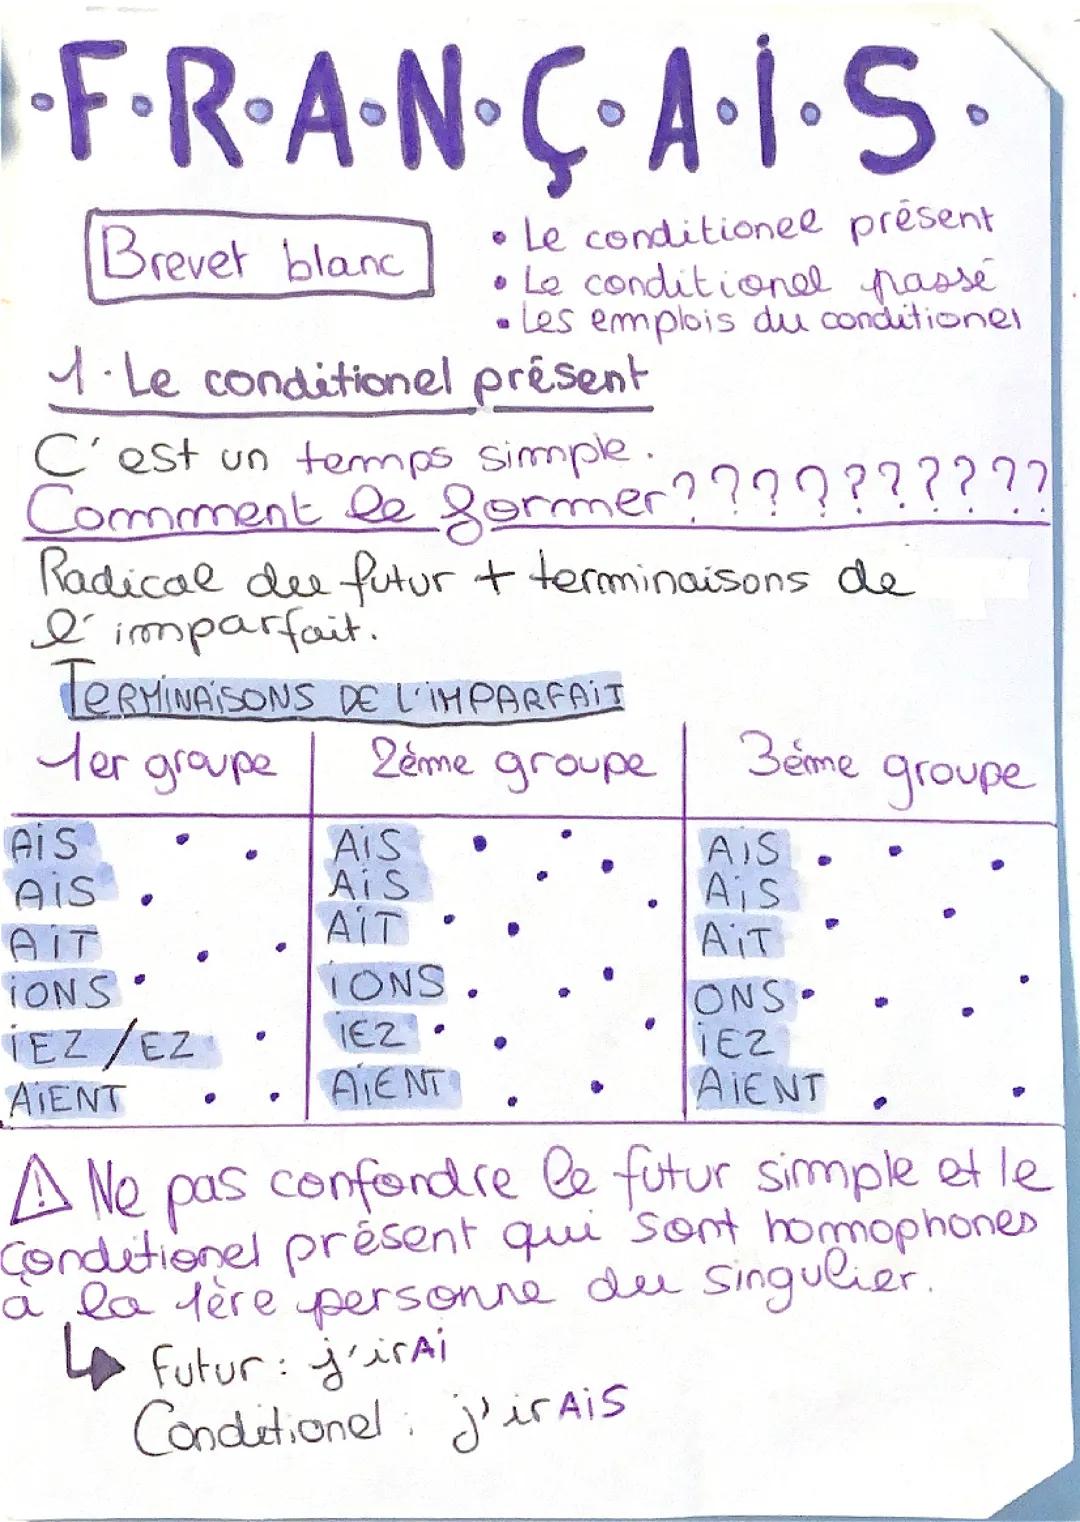 ·F·R·A·N·Ç·A·I·S·
Brevet blanc
• Le conditionel présent
• Le conditionel passé
• Les emplois du conditionel
1. Le conditionel présent
C'est un temps simple.
Comment le former??????????
Radical du futur + terminaisons de
l'imparfait.
TERMINAISONS DE L'IMPARFAIT
1er groupe 2ème groupe 3ème groupe
AIS AIS AIS
AIS AIS AIS
AIT AIT AIT
IONS IONS ONS
IEZ/EZ IEZ IEZ
AIENT AIENT AIENT
⚠ Ne pas confondre le futur simple et le
conditionel présent qui sont homophones
à la 1ère personne du singulier.
↳ Futur : j'irAi
Conditionel : j'irAIS